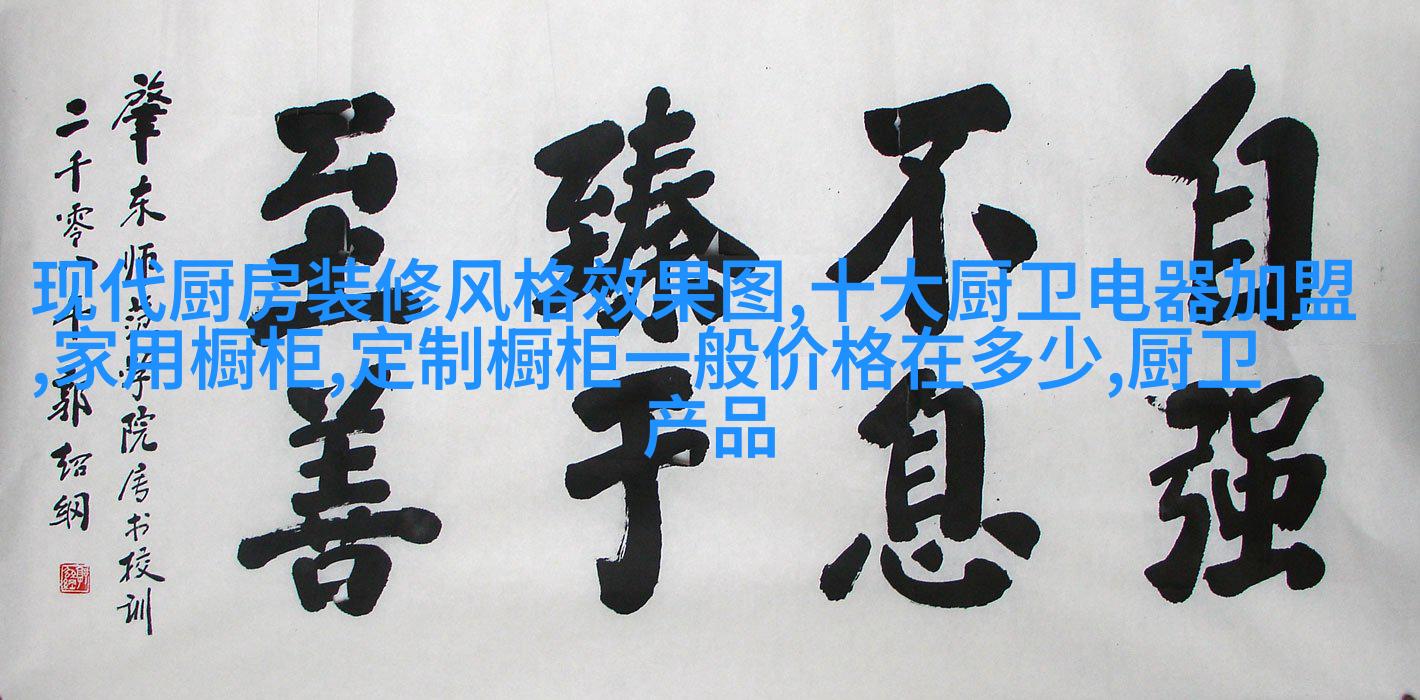 自强
不息
臻于
至善
肇东师范学院属书校训
二千零年郭绍纲
现代厨房装修风格效果图,十大厨卫电器加盟
,家用橱柜,定制橱柜一般价格在多少,厨卫
产品